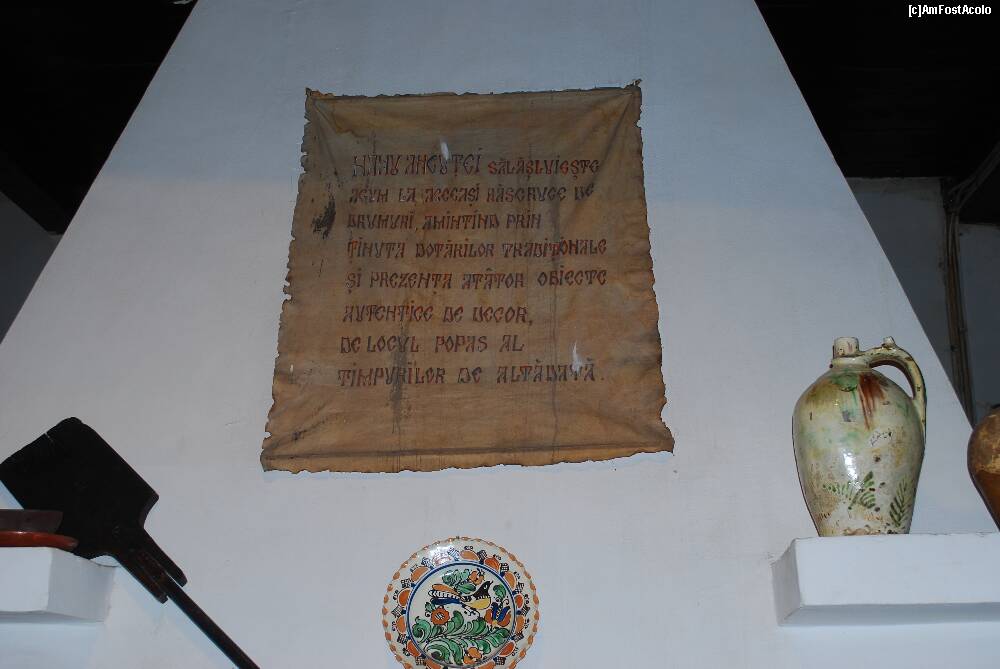 [c]AmFostAcolo
HANU ANCUȚEI SĂLĂȘLUIEȘTE
ACUM LA ACEEAȘI RĂSCRUCE DE
DRUMURI, AMINTIND PRIN
ȚINUTA DOTĂRILOR TRADIȚIONALE
ȘI PREZENȚA ATÂTOR OBIECTE
AUTENTICE DE DECOR,
DE LOCUL POPAS AL
TIMPURILOR DE ALTĂDATĂ.